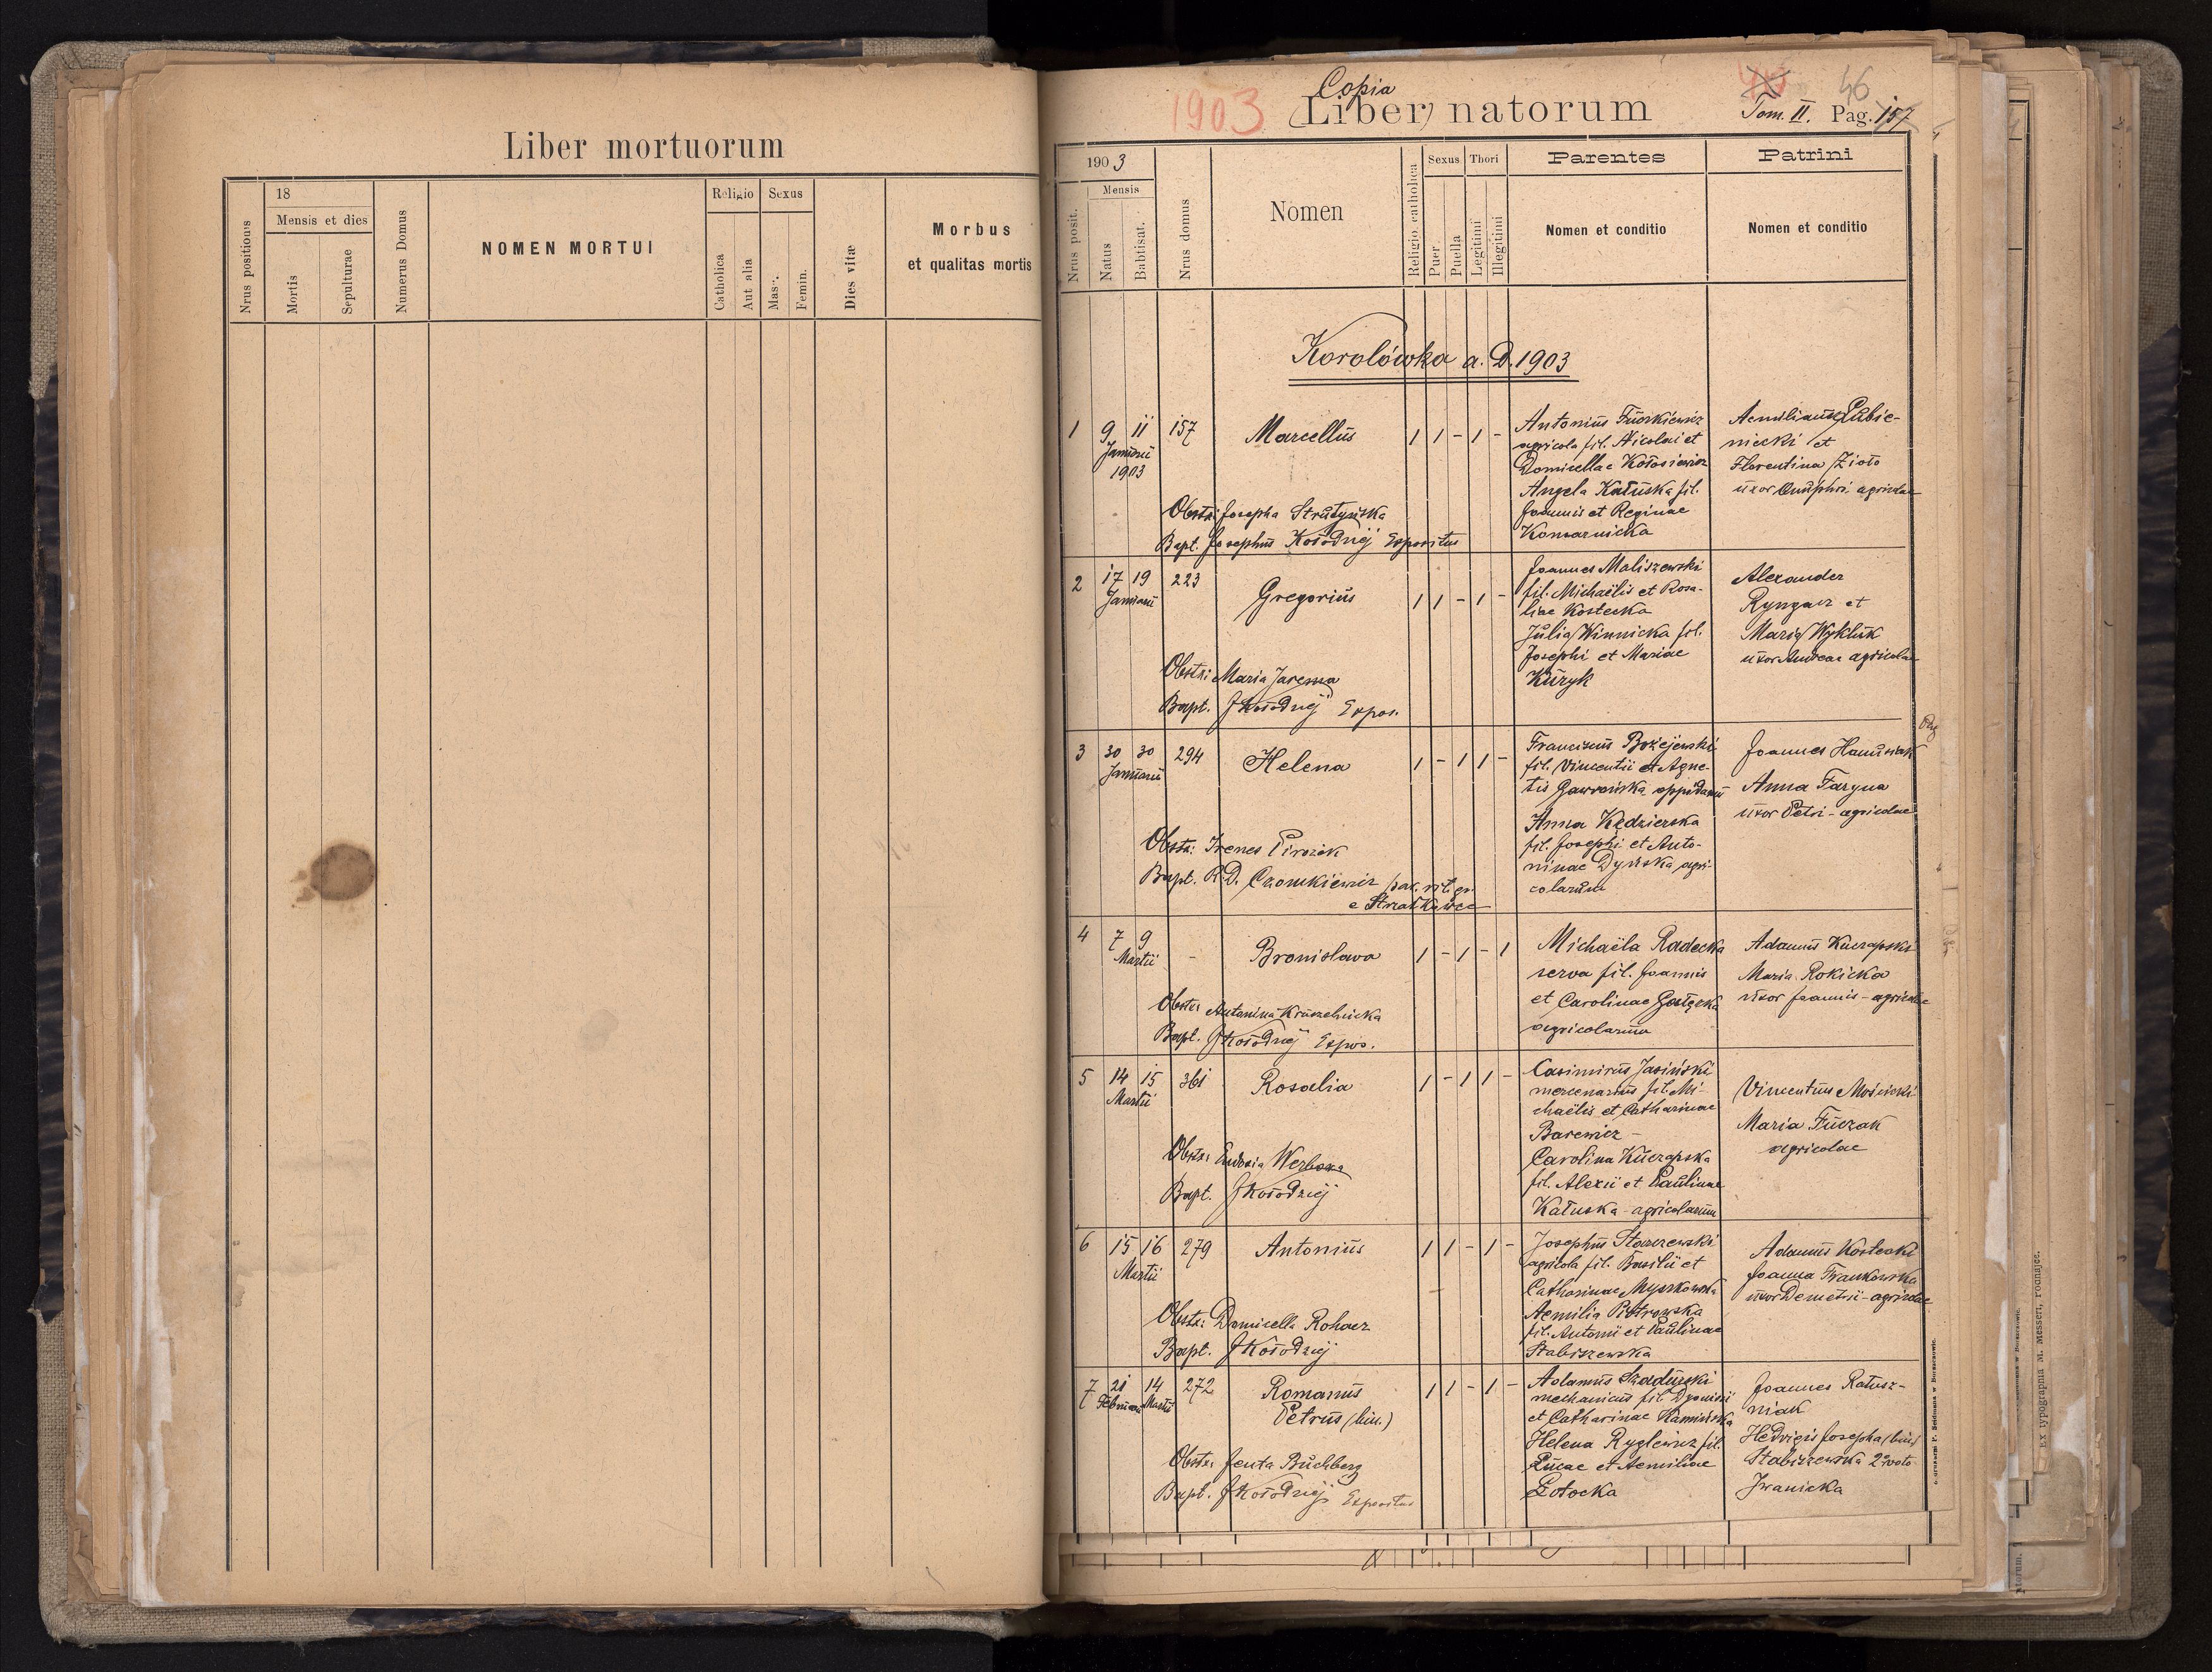 Liber mortuorum
Nrus positionis
18
Mensis et dies
Mortis
Sepulturae
Numerus Domus
NOMEN MORTUI
Religio
Catholica
Aut alia
Sexus
Masc.
Femin.
Dies vitæ
Morbus
et qualitas mortis
1903
Copia
Liber natorum
46
Tom. II. Pag. 157
1903
Nrus posit.
Mensis
Natus
Babtisat.
Nrus domus
Nomen
Religio. catholica
Sexus
Puer
Puella
Thori
Legitimi
Illegitimi
Parentes
Nomen et conditio
Patrini
Nomen et conditio
Korolówka a. D. 1903
1 9 11 157 Marcellus 1 1 - 1 -
Januarii
1903
Antonius
agricola fil. Nicolai et
Domicellae Kołosiewicz
Angela Kałuska fil.
Joannis et Reginae
Komarnicka
Aemilianus Łubie-
niecki et
Florentina Zioło
uxor Onuphri agricolae
Obstr: Josepha Strutyńska
Bapt. Josephus Kołodziej Expositus
2 17 19 223 Gregorius 1 1 - 1 -
Januarii
Joannes Maliszewski
fil. Michaëlis et Rosa-
liae Kostecka
Julia Winnicka fil.
Josephi et Mariae
Kuryk
Alexander
Ryngacz et
Maria Wykluk
uxor Andreae agricolae
Obstr: Maria Jarema
Bapt. J Kołodziej Expos.
3 30 30 294 Helena 1 - 1 1 -
Januarii
Franciscus Bożejewski
fil. Vincentii et Agne-
tis Gawrońska oppidani
Anna Kędzierska
fil. Josephi et Anto-
ninae Dyńska agri-
colarum
Joannes Hanusiak
Anna Faryna
uxor Petri - agricolae
Obstr: Irenes Pirozik
Bapt. R. D. Czomkiewicz par. rit. gr.
e Strzałkowce
4 7 9 - Bronislava 1 - 1 - 1
Martii
Michaëla Radecka
serva fil. Joannis
et Carolinae
agricolarum
Adamus Kuczapski
Maria Rokicka
uxor Joannis - agricolae
Obstr: Antonina Kruszelnicka
Bapt. J Kołodziej Expos.
5 14 15 361 Rosalia 1 - 1 1 -
Martii
Casimirus Jasiński
mercenarius fil. Mi-
chaëlis et Catharinae
Barewicz -
Carolina Kuczapska
fil. Alexii et Paulinae
Kałuska - agricolarum
Vincentius Mościcki
Maria Fuczak
agricolae
Obstr: Eudoxia Werbska
Bapt. J Kołodziej
6 15 16 279 Antonius 1 1 - 1 -
Martii
Josephus Starzewski
agricola fil. Basilii et
Catharinae Myszkowska
Aemilia Piotrowska
fil. Antonii et Paulinae
Stabiszewska
Adamus Kostecki
Joanna Frankowska
uxor Demetrii - agricolae
Obstr: Domicella Rohacz
Bapt. J Kołodziej
7 21 14 272 Romanus 1 1 - 1 -
Februarii Martii
Petrus (bin.)
Adamus Szadurski
mechanicus fil. Dyonisii
et Catharinae Kamińska
Helena Ryglewicz fil.
Lucae et Aemiliae
Łotocka
Joannes Ratusz-
niak
Hedvigis Josepha (bin.)
Stabiszewska 2º voto
Iwanicka
Obstr: Jenta Buchberg
Bapt. J Kołodziej Expositus
Ex typographia M. Messeri, rodnajce.